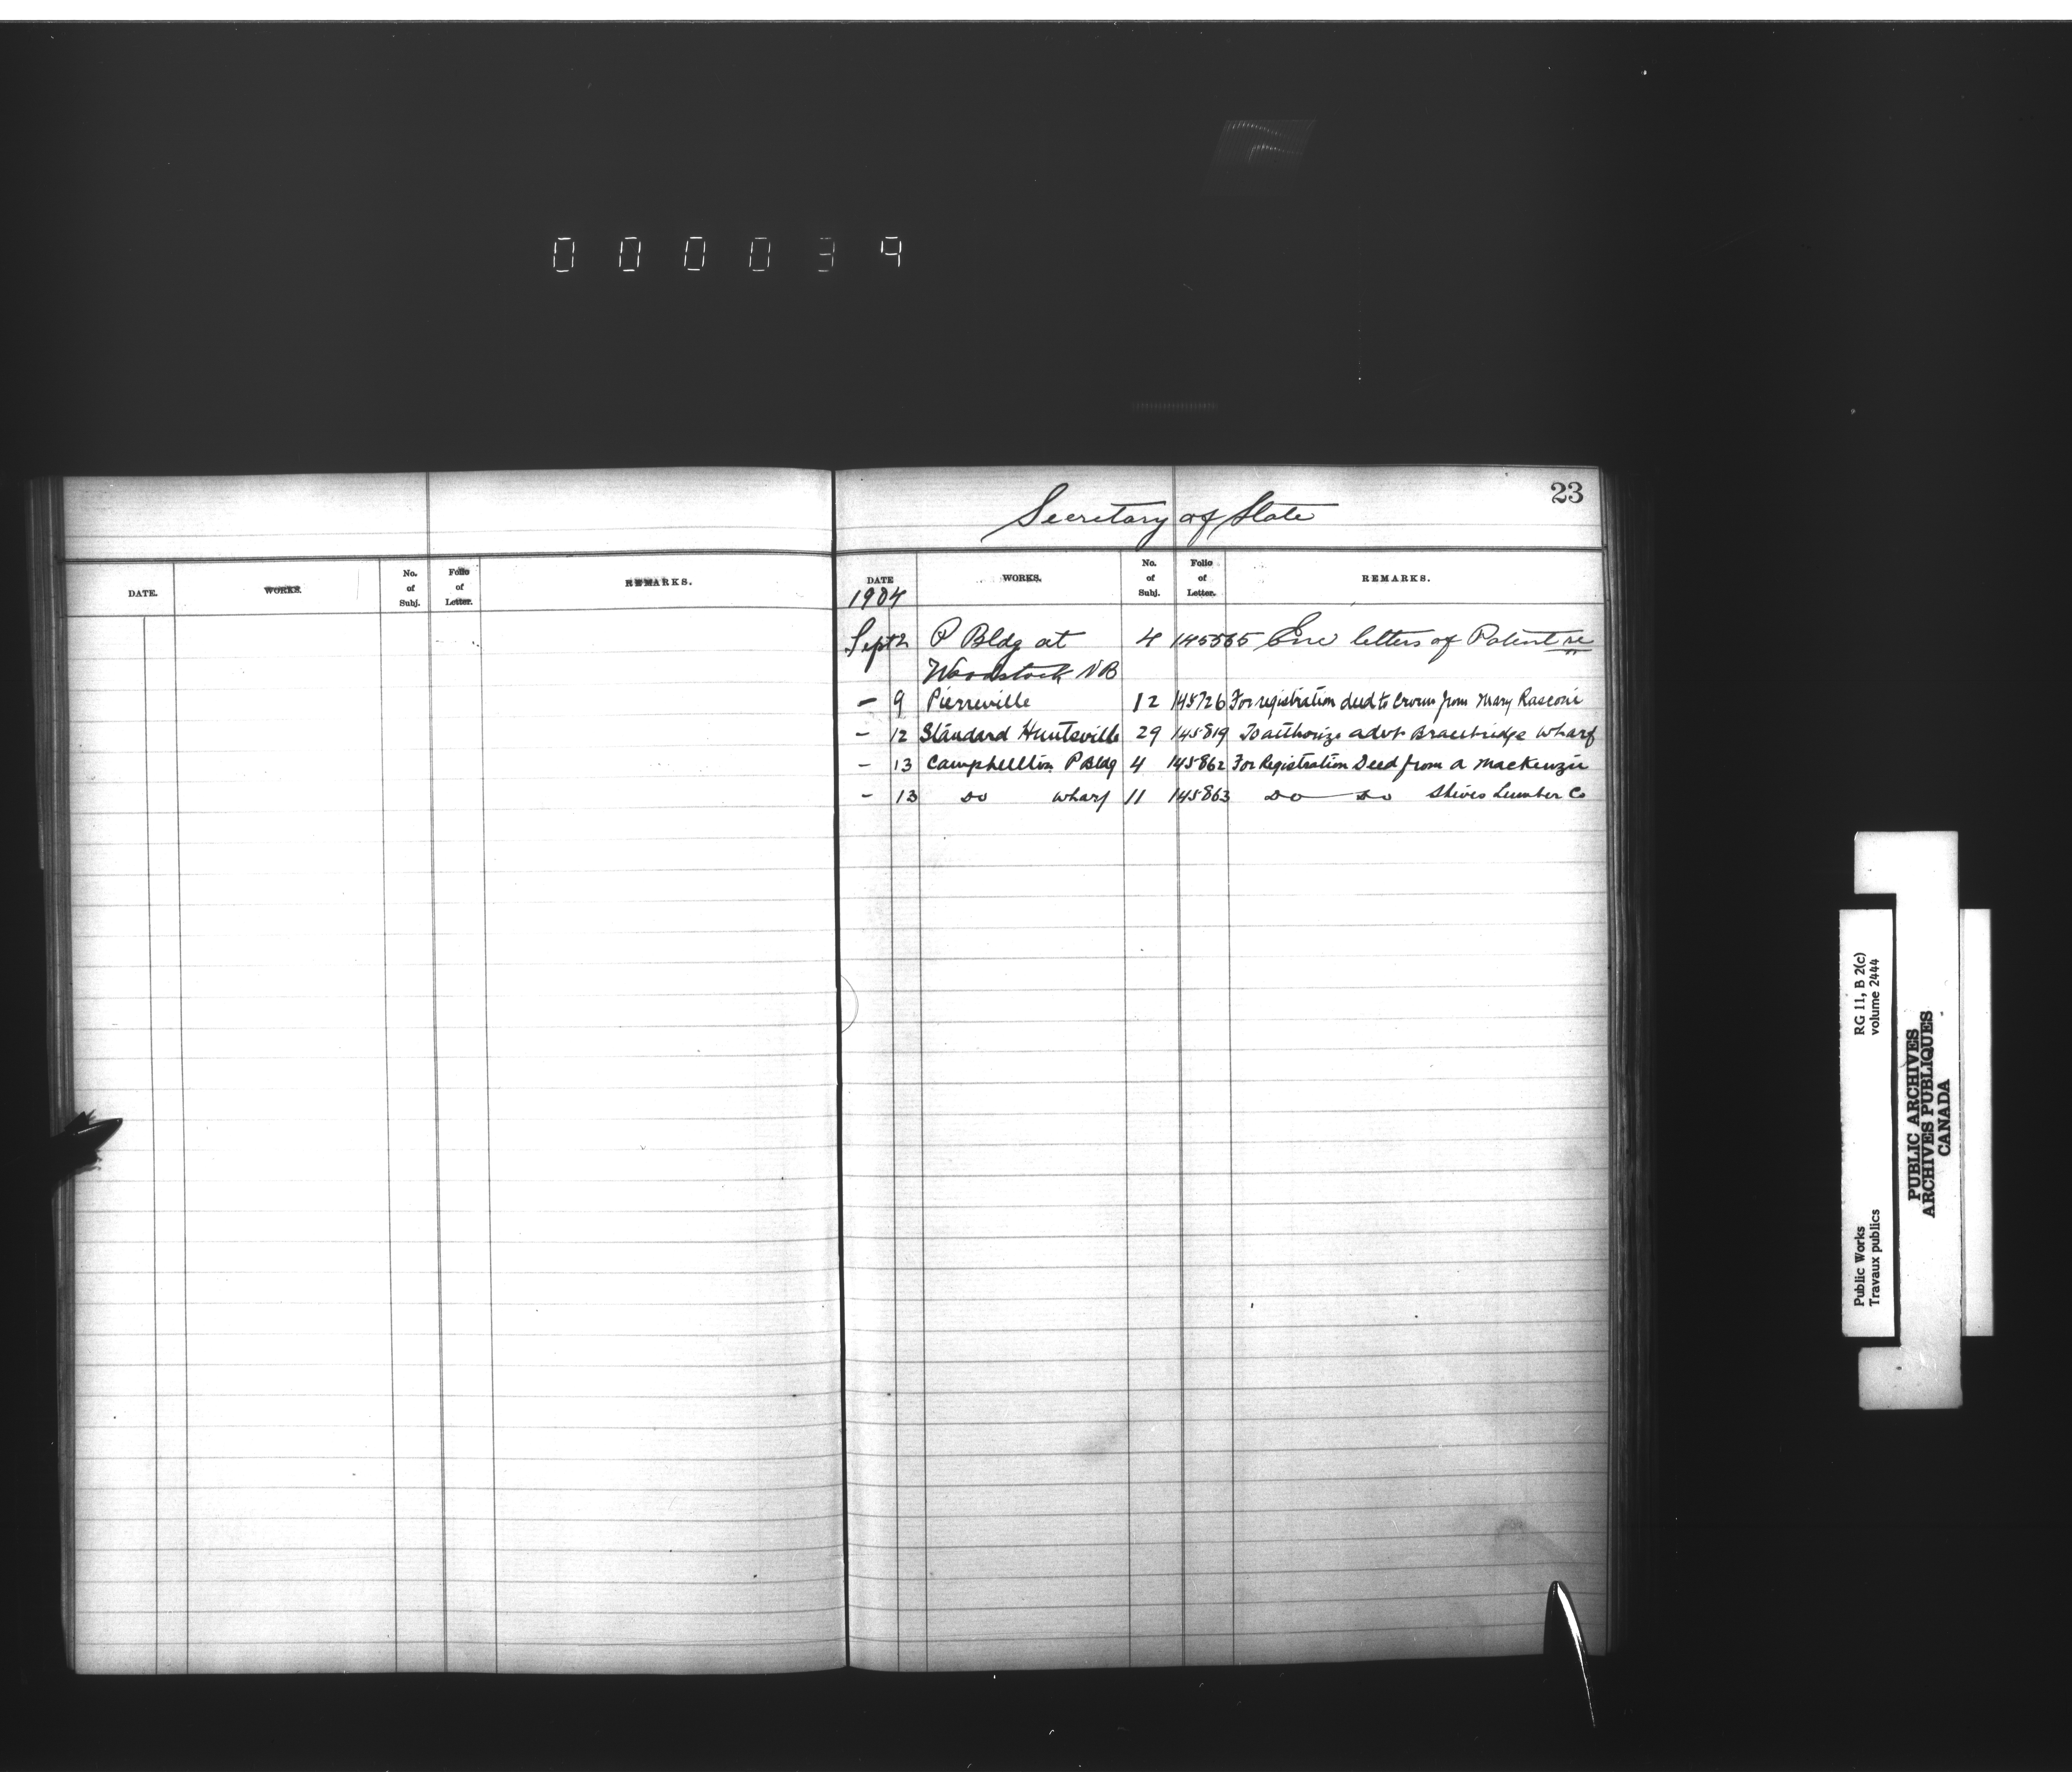 000039
23
Secretary of State
DATE. WORKS. No. of Subj. Folio of Letter. REMARKS.
DATE WORKS. No. of Subj. Folio of Letter. REMARKS.
1904
Sept 2 P Bldg at 4 145565 Enc letters of Patent re
Woodstock NB
- 9 Pierreville 12 145726 For registration deed to Crown from Mary Rasconi
- 12 Standard Huntsville 29 145819 To authorize advt Bracebridge Wharf
- 13 Campbellton P Bldg 4 145862 For Registration Deed from A Mackenzie
- 13 Do wharf 11 145863 Do Do Shives Lumber Co
RG 11, B 2(c)
volume 2444
Public Works
Travaux publics
PUBLIC ARCHIVES
ARCHIVES PUBLIQUES
CANADA